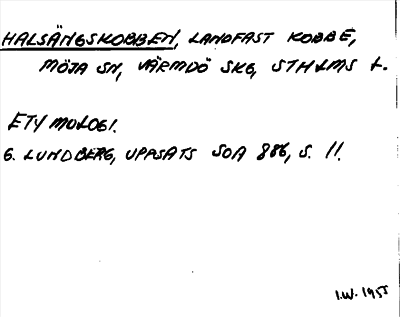 HALSÄNGSKOBBEN, LANDFAST KOBBE,
MÖJA SN, VÄRMDÖ SKG, STHLMS L.
ETYMOLOGI.
G. LUNDBERG, UPPSATS SOA 886, S. 11.
I.W. 1955